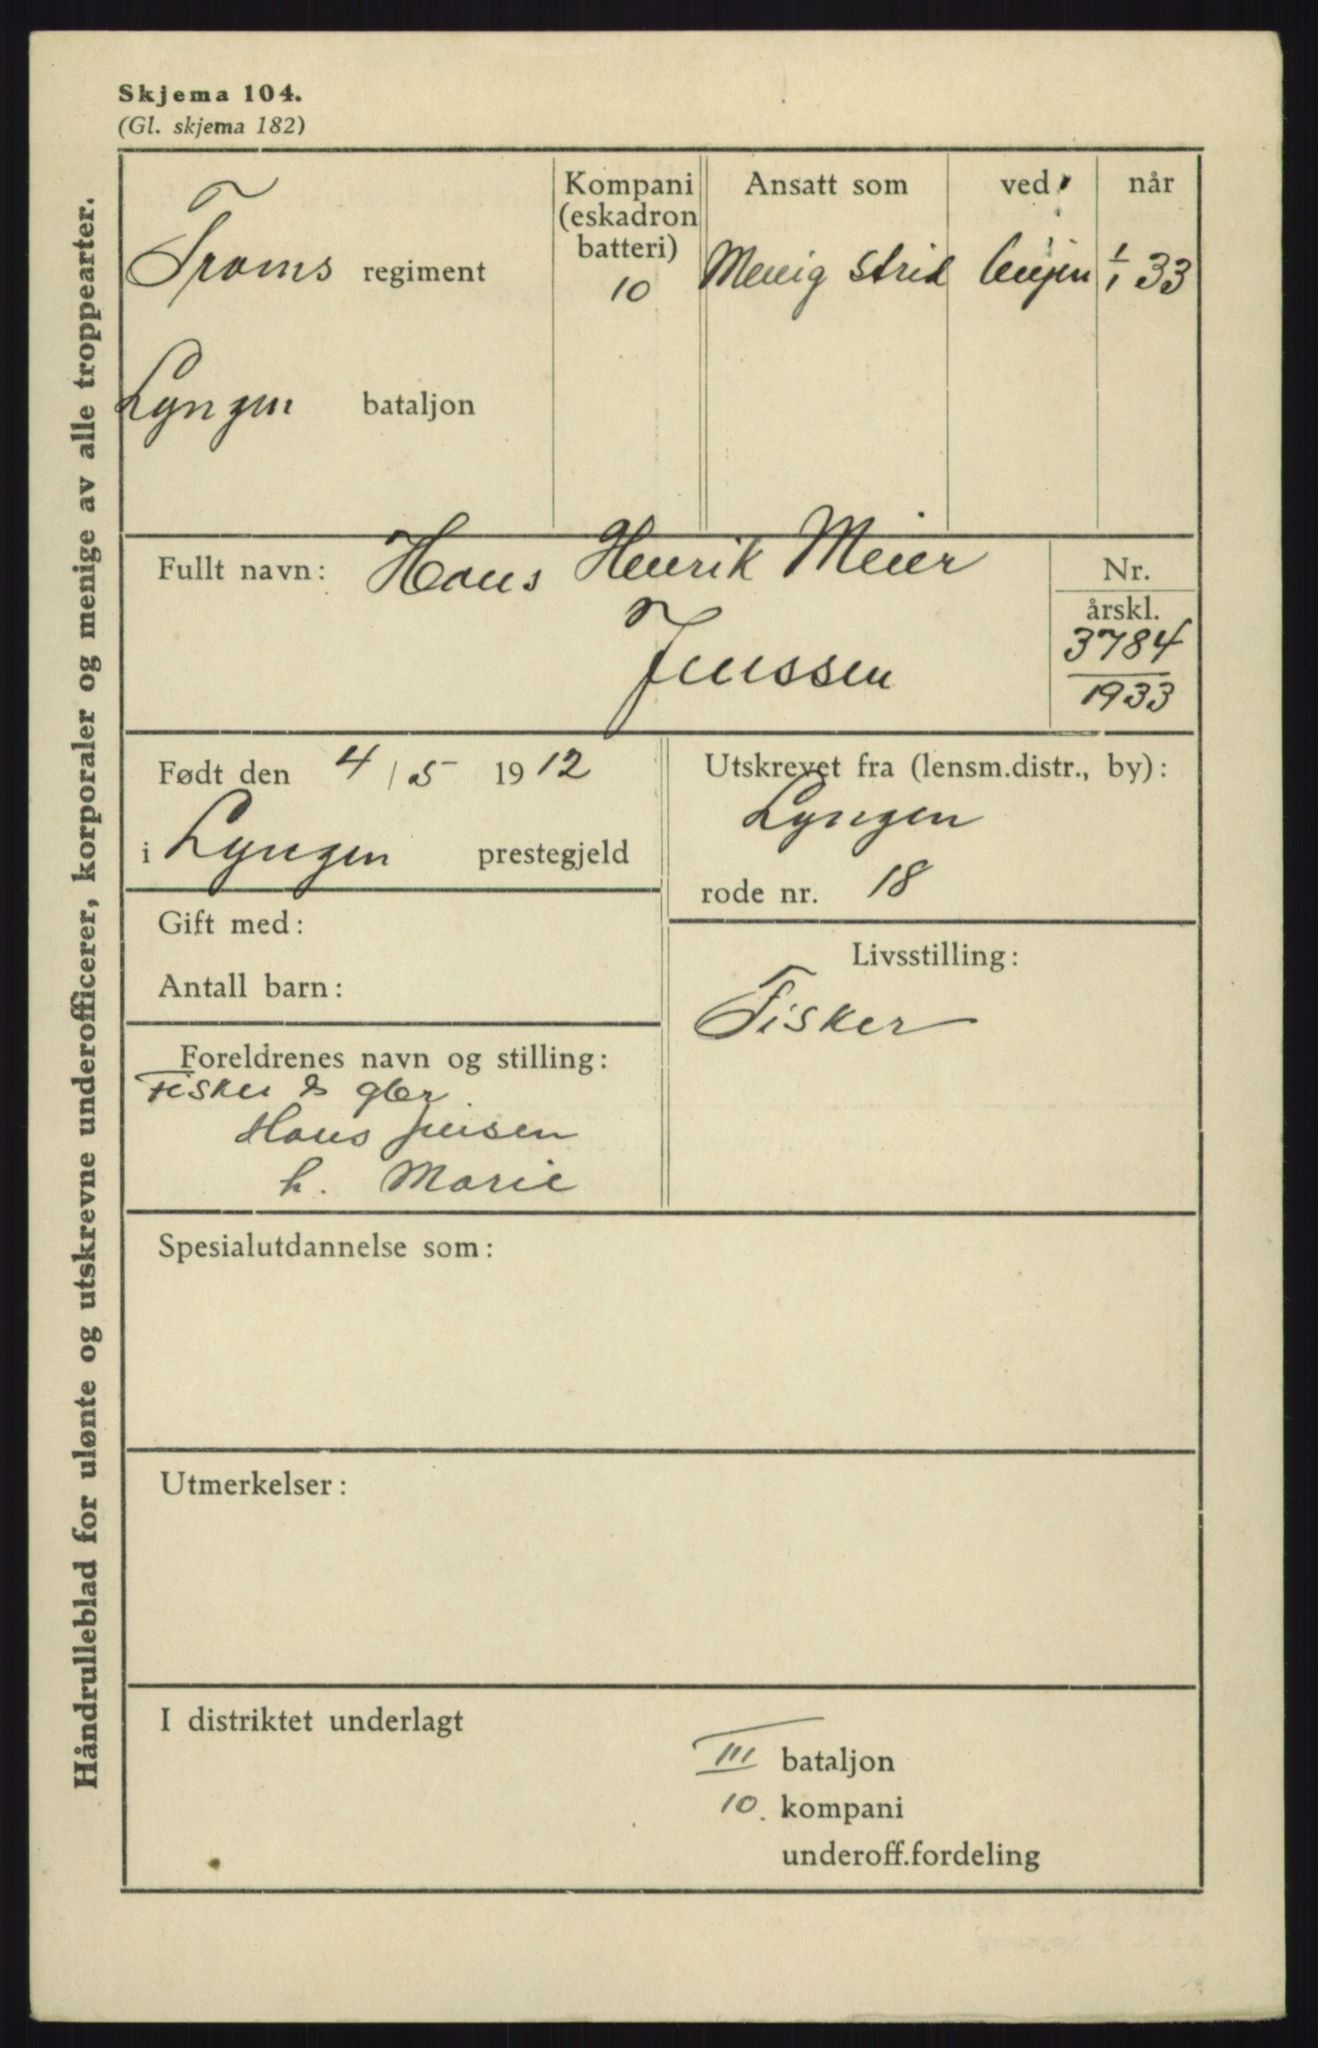 Skjema 104.
(Gl. skjema 182)
Håndrulleblad for ulønte og utskrevne underofficerer, korporaler og menige av alle troppearter.
Troms regiment
Lyngen bataljon
Kompani
(eskadron
batteri)
10
Ansatt som
Menig strid
ved
når
1/1 33
Fullt navn: Hans Henrik Meier
Jenssen
Nr.
årskl.
3784
1933
Født den 4/5 1912
i Lyngen prestegjeld
Utskrevet fra (lensm.distr., by):
Lyngen
rode nr. 18
Gift med:
Antall barn:
Livsstilling:
Fisker
Foreldrenes navn og stilling:
Fisker & gbr.
Hans Jensen
h. Marie
Spesialutdannelse som:
Utmerkelser:
I distriktet underlagt
III bataljon
10. kompani
underoff.fordeling